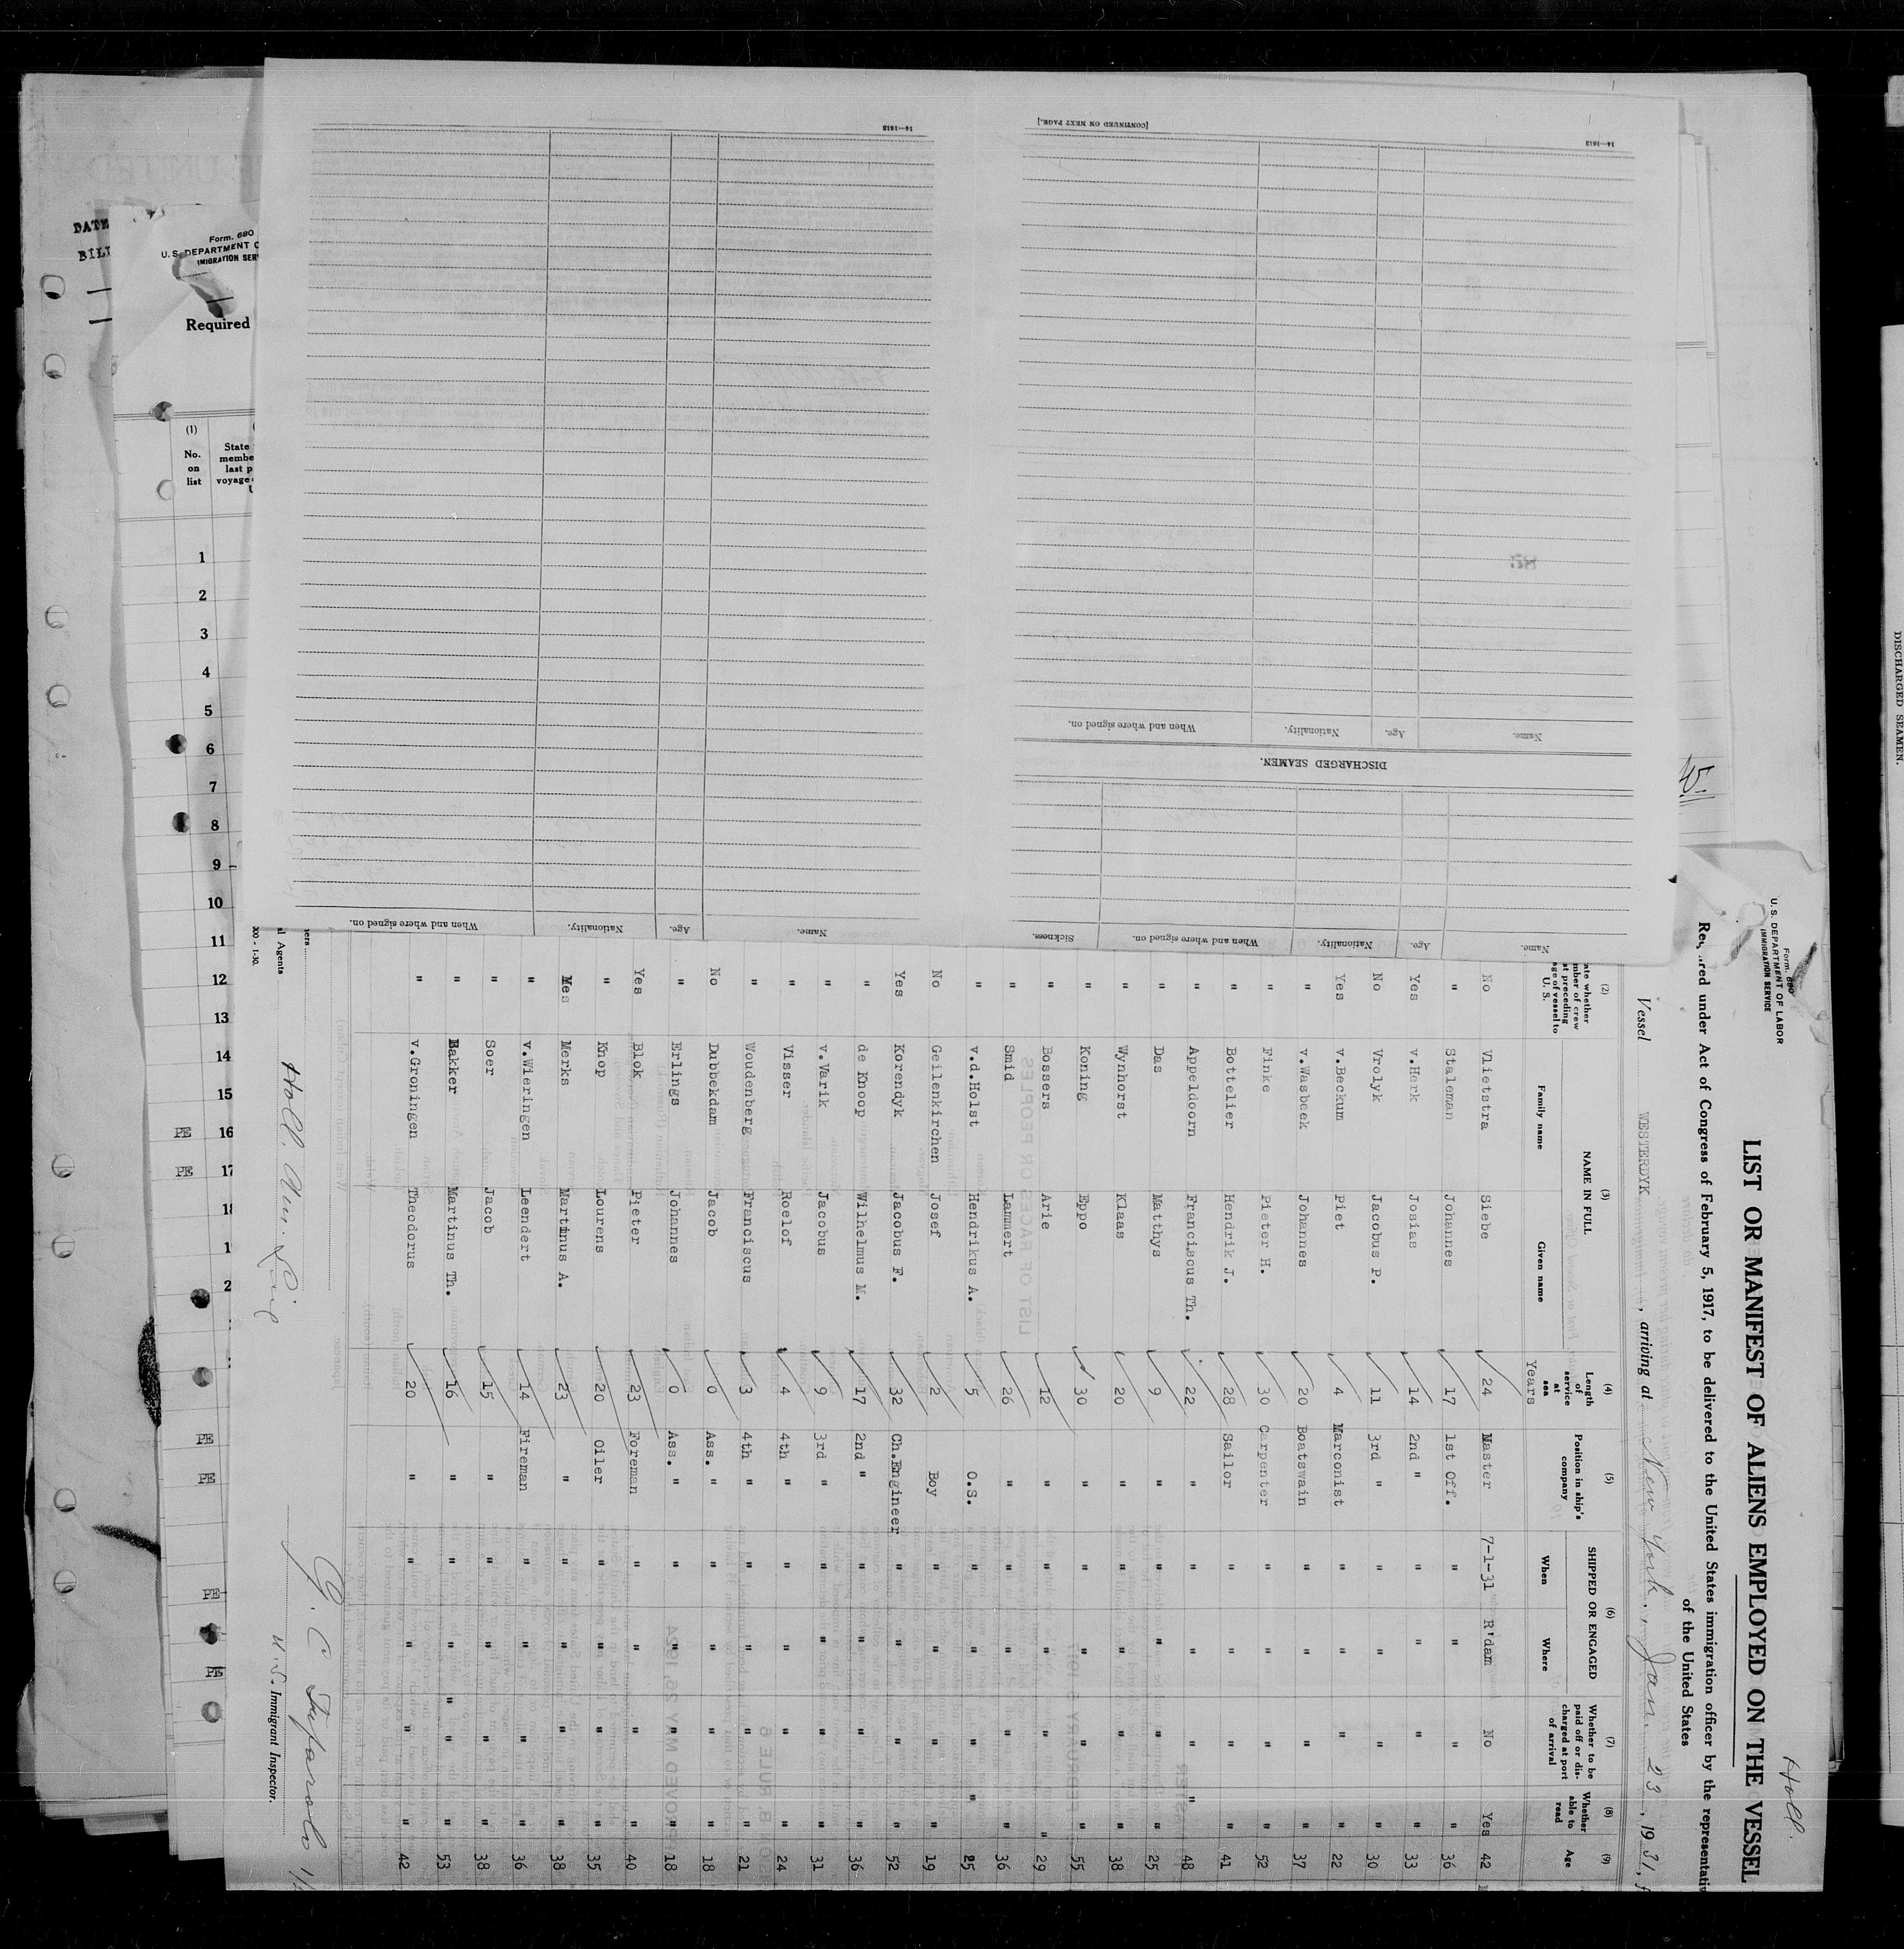 Holl.
Form. 680
U.S. DEPARTMENT OF LABOR
IMMIGRATION SERVICE
LIST OR MANIFEST OF ALIENS EMPLOYED ON THE VESSEL
under Act of Congress of February 5, 1917, to be delivered to the United States immigration officer by the
of the United States
Vessel WESTERDYK, arriving at New York, Jan. 23, 1931,
(2) (3) (4) (5) (6) (7) (8) (9)
NAME IN FULL Length of service at sea Position in ship's company SHIPPED OR ENGAGED Whether to be paid off or discharged at port of arrival Whether able to read Age
Family name Given name Years When Where
No Vlietstra Siebe 24 Master 7-1-31 R'dam No Yes 42
" Staleman Johannes 17 1st Off. " " " " 36
Yes v.Herk Josias 14 2nd " " " " " 33
No Vrolyk Jacobus P. 11 3rd " " " " " 30
Yes v.Beckum Piet 4 Marconist " " " " 22
" v.Wasbeek Johannes 20 Boatswain " " " " 37
" Finke Pieter H. 30 Carpenter " " " " 52
" Bottelier Hendrik J. 28 Sailor " " " " 41
" Appeldoorn Franciscus Th. 22 " " " " " 48
" Das Matthys 9 " " " " " 25
" Wynhorst Klaas 20 " " " " " 38
" Koning Eppo 30 " " " " " 55
" Bossers Arie 12 " " " " " 29
" Smid Lammert 26 " " " " " 36
" v.d.Holst Hendrikus A. 5 O.S. " " " " 25
No Geilenkirchen Josef 2 Boy " " " " 19
Yes Korendyk Jacobus F. 32 Ch.Engineer " " " " 52
" de Knoop Wilhelmus M. 17 2nd " " " " " 36
" v.Varik Jacobus 9 3rd " " " " " 31
" Visser Roelof 4 4th " " " " " 24
" Woudenberg Franciscus 3 4th " " " " " 21
No Dubbekdam Jacob 0 Ass. " " " " " 18
" Erlings Johannes 0 Ass. " " " " " 18
Yes Blok Pieter 23 Foreman " " " " 40
" Knop Lourens 20 Oiler " " " " 35
Mes Merks Martinus A. 23 " " " " " 38
" v.Wieringen Leendert 14 Fireman " " " " 36
" Soer Jacob 15 " " " " " 38
" Bakker Martinus Th. 16 " " " " " 53
" v.Groningen Theodorus 20 " " " " " 42
Holl. Am. Line
Immigrant Inspector.
l Agents
14—1613
[CONTINUED ON NEXT PAGE.]
14—1613
Name. Age. Nationality. When and where signed on.
DISCHARGED SEAMEN.
Name. Age. Nationality. When and where signed on. Sickness.
Name. Age. Nationality. When and where signed on.
DATE
Form. 680
U.S. DEPARTMENT
Required
(1)
No. on list
State
last
voyage
1
2
3
4
5
6
7
8
9
10
11
12
13
14
15
PE 16
PE 17
PE
PE
PE
PE
DISCHARGED SEAMEN.